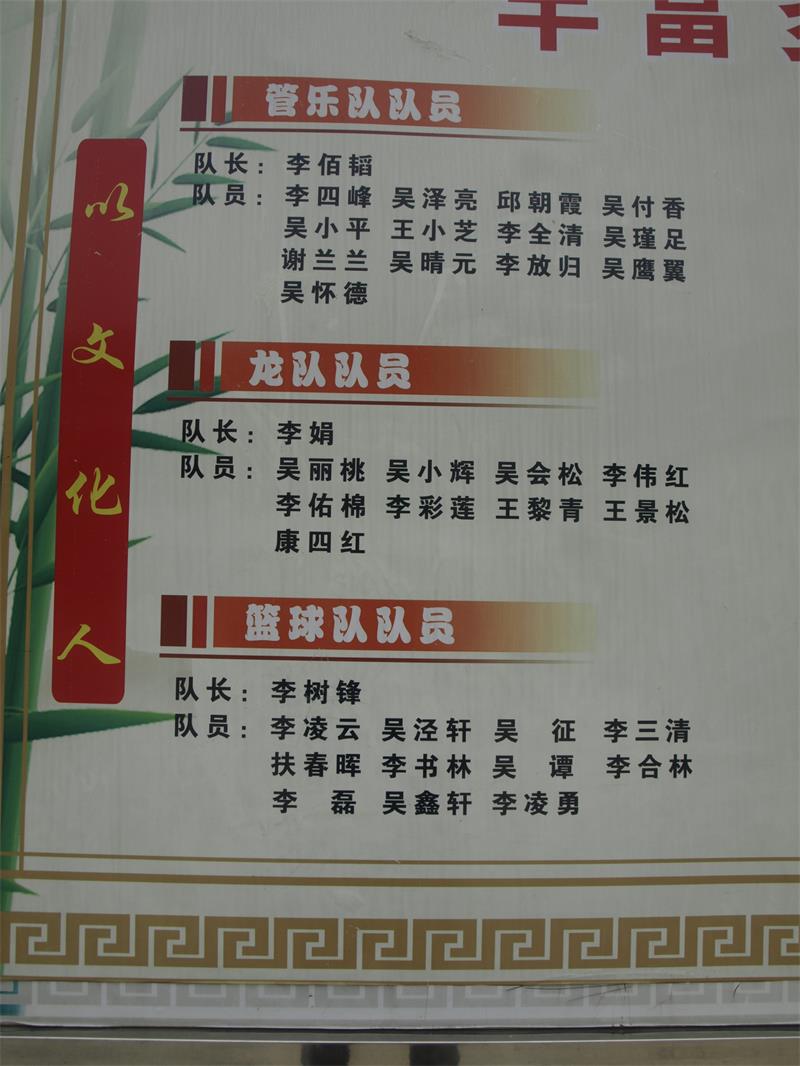 丰富
以文化人
管乐队队员
队长：李佰韬
队员：李四峰 吴泽亮 邱朝霞 吴付香
吴小平 王小芝 李全清 吴瑾足
谢兰兰 吴晴元 李放归 吴鹰翼
吴怀德
龙队队员
队长：李娟
队员：吴丽桃 吴小辉 吴会松 李伟红
李佑棉 李彩莲 王黎青 王景松
康四红
篮球队队员
队长：李树锋
队员：李凌云 吴泾轩 吴 征 李三清
扶春晖 李书林 吴 谭 李合林
李 磊 吴鑫轩 李凌勇